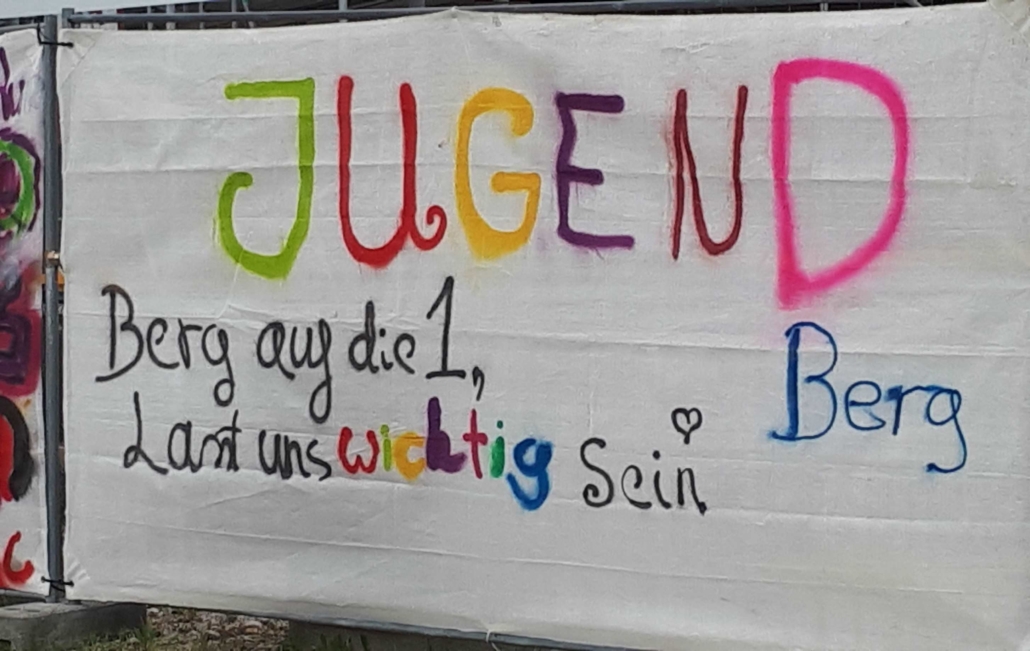 JUGEND
Berg auf die 1,
Lasst uns wichtig sein
Berg